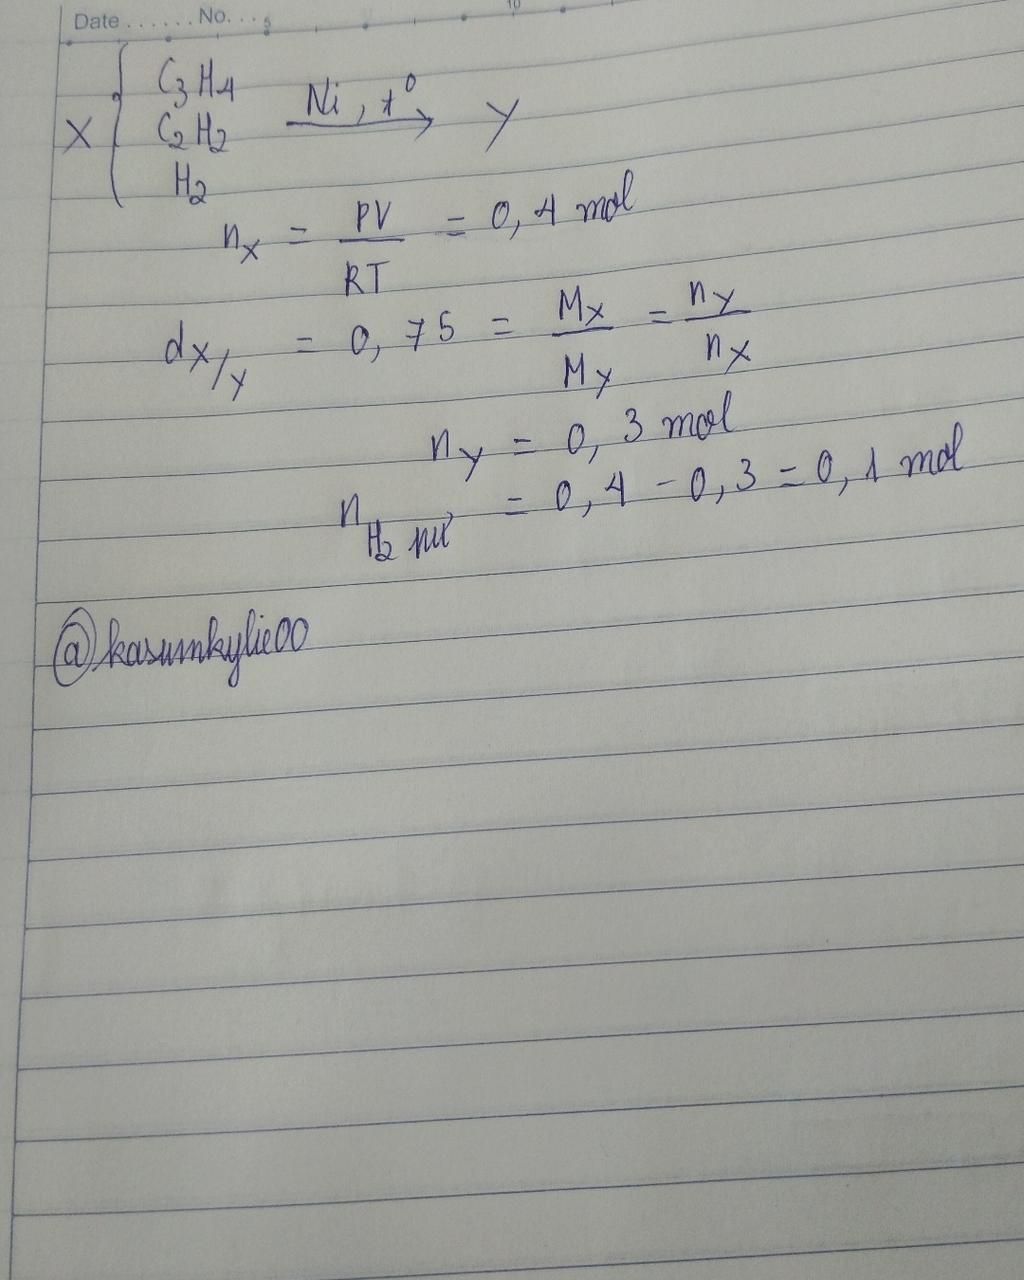 Date ...... No. ...
5
10
X { C3H4
C2H2
H2
Ni, t° → Y
nX = PV / RT = 0,4 mol
dX/Y = 0,75 = MX / MY = nY / nX
nY = 0,3 mol
nH2 pư = 0,4 - 0,3 = 0,1 mol
@kasumkylie00